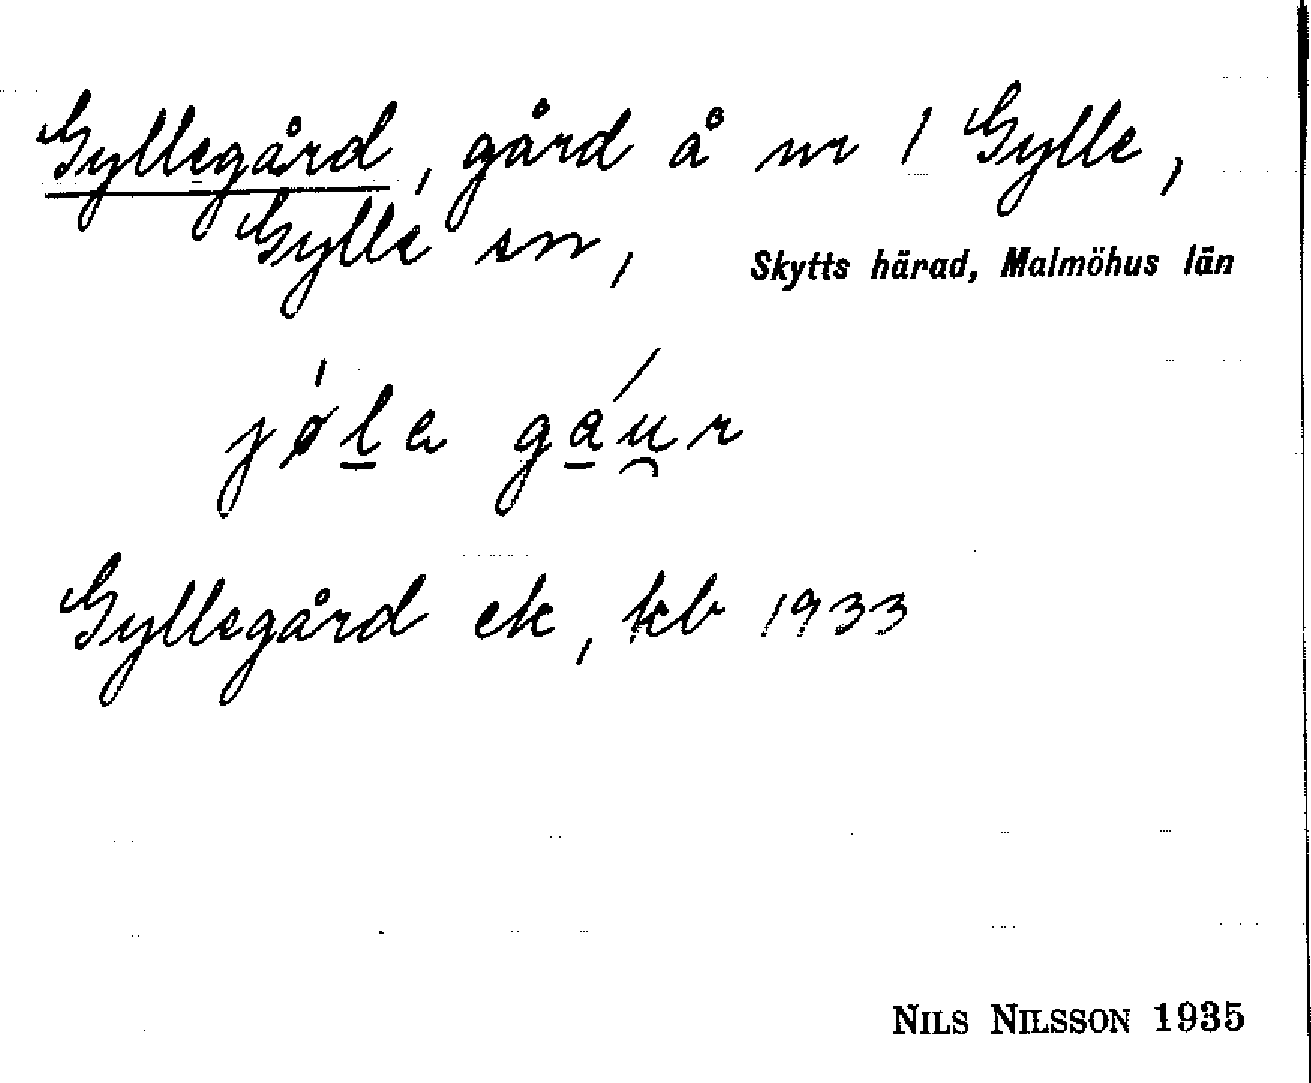 Gyllegård, gård å nr 1 Gylle,
Gylle sn, Skytts härad, Malmöhus län
jø̍l̲a ga̲̒u̯r
Gyllegård ek, kb 1933
NILS NILSSON 1935